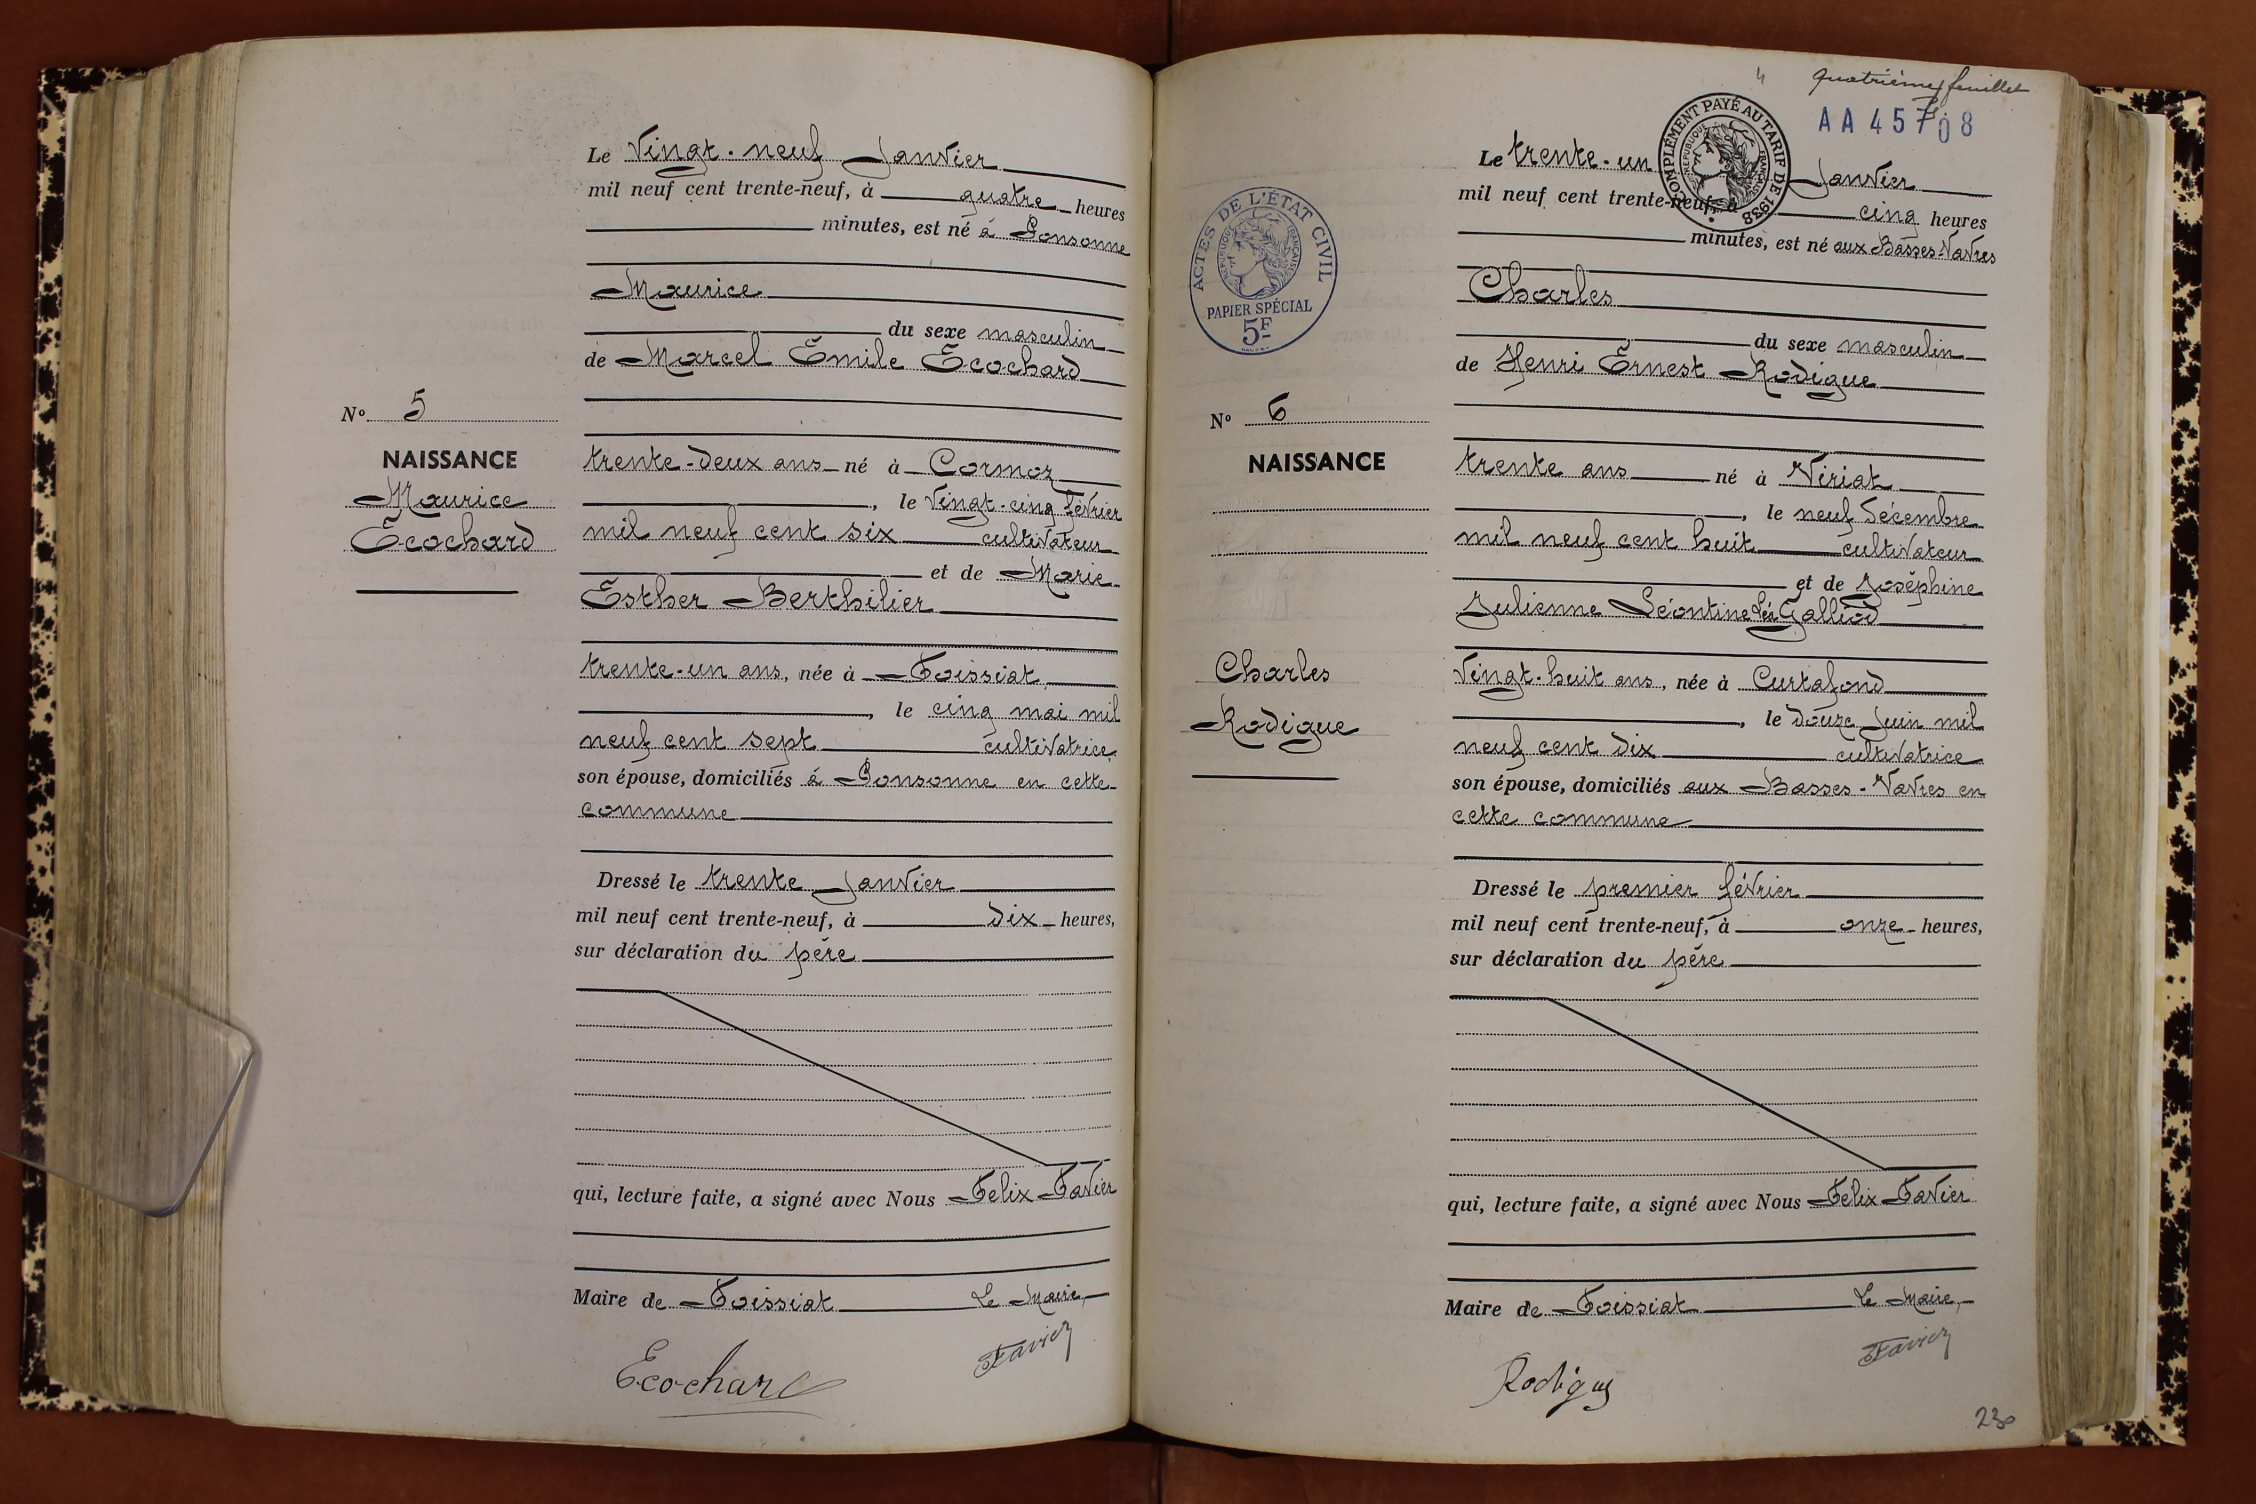 Le Vingt-neuf Janvier
mil neuf cent trente-neuf, à quatre heures
minutes, est né à Ponsonne
Maurice
du sexe masculin
de Marcel Emile Ecochard
trente-deux ans né à Cormoz
, le Vingt-cinq février
mil neuf cent six cultivateur
et de Marie
Esther Berthilier
trente-un ans, née à Foissiat
, le cinq mai mil
neuf cent sept cultivatrice
son épouse, domiciliés à Ponsonne en cette
commune
Dressé le trente Janvier
mil neuf cent trente-neuf, à dix heures,
sur déclaration du père
qui, lecture faite, a signé avec Nous Felix Favier
Maire de Foissiat Le Maire,
Ecochard
Favier
N° 5
NAISSANCE
Maurice
Ecochard
4 quatrième feuillet
AA 45708
COMPLÉMENT PAYÉ AU TARIF DE 1938
RÉPUBLIQUE FRANÇAISE
Le trente-un Janvier
mil neuf cent trente-neuf, à cinq heures
minutes, est né aux Basses-Vavres
Charles
du sexe masculin
de Henri Ernest Rodigue
trente ans né à Viriat
, le neuf Décembre
mil neuf cent huit cultivateur
et de Joséphine
Julienne Léontine Léa Galliod
Vingt-huit ans, née à Curtafond
, le douze Juin mil
neuf cent dix cultivatrice
son épouse, domiciliés aux Basses-Vavres en
cette commune
Dressé le premier février
mil neuf cent trente-neuf, à onze heures,
sur déclaration du père
qui, lecture faite, a signé avec Nous Félix Favier
Maire de Foissiat Le Maire,
Rodigue
Favier
ACTES DE L'ÉTAT CIVIL
RÉPUBLIQUE FRANÇAISE
PAPIER SPÉCIAL
5F
N° 6
NAISSANCE
Charles
Rodigue
230